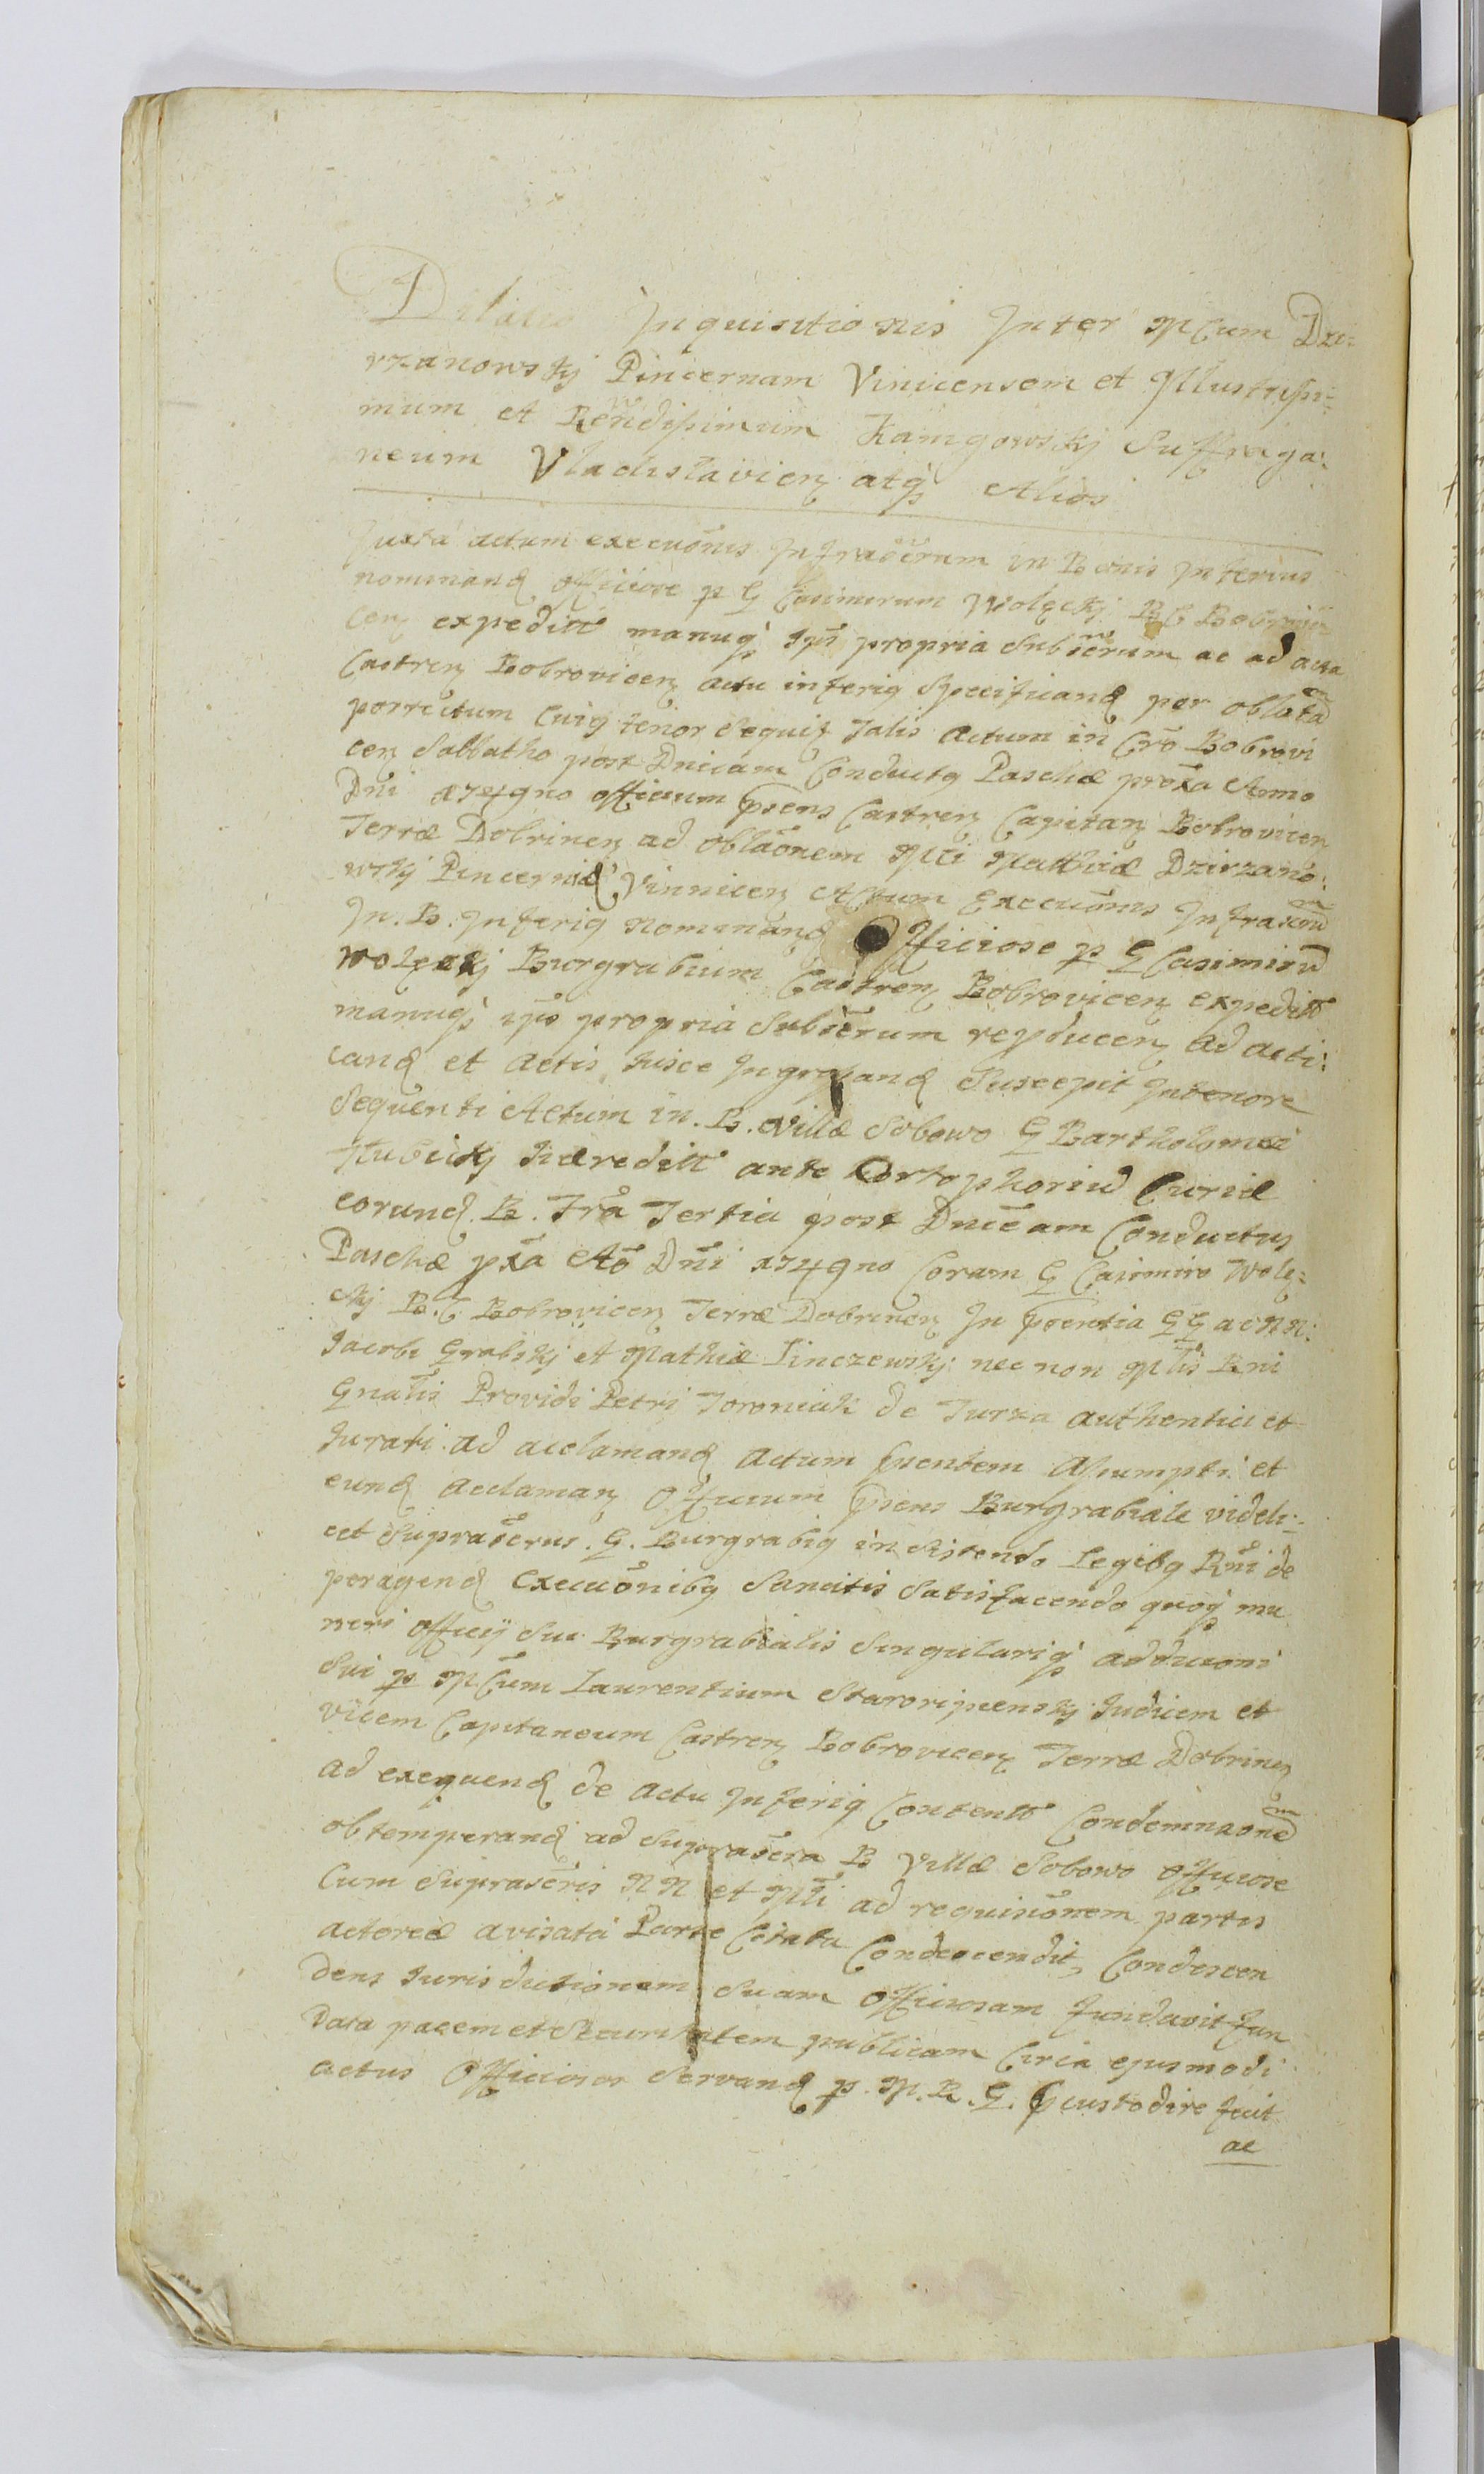 Dilatio Inquisitionis Inter Mcum Dzi=
rzanowskj Pincernam Vinicensem et Illustrissi=
mum et Rendissimum Kamgowskj Suffraga:
neum Vladislavien atq Alios
Juxta actum execuonis Infrascrum in Bonis Inferius
nominand officiose p G Casimirum Wolęckj B C Bobrowi
cen expeditt manuq ipī propria Subscrum ac ad acta
Castren Bobrovicen actu inferiq Specificand per oblatam
porrectum cuiq tenor Sequit Talis Actum in Cro Bobrovi
cen Sabbatho post Dnicam Conductq Paschæ proxa Anno
Dni 1749no officium psens Castren Capitan Bobrovicen
Terræ Dobrinen ad oblaonem Mci Mathiæ Dzirzano:
wskj Pincernæ Vinnicen Actum Execuonis Infrascrum
In. B. Inferiq Nominand Officiose p G Casimirum
Wolęckj Burgrabium Castren Bobrovicen expeditt
manuq ips propria Subscrum reproducen Ad acti:
cand et Actis hisce Ingrossand Suscepit Intenore
Sequenti Actum in. B. Villæ Sobowo G Bartholomæi
Rubickj Hæreditt ante Cortophorium Curiæ
eorund. B. Fra Tertia post Dnicam Conductus
Paschæ pxa Ao Dni 1749no Coram G Casimiro Wolę=
ckj B. C. Bobrovicen Terræ Dobrinen In psentia GG ac NN:
Jacobi Grabskj et Mathiæ Linczewskj nec non Mlis Rni
Gnalis Providi Petri Toroniak de Turza authentici et
Jurati ad acclamand Actum psentem Assumpti et
eund Acclaman Officium psens Burgrabiale videli=
cet Suprascrus. G. Burgrabiq insistendo Legibq Rni de
peragend Execuonibq Sancitis Satisfacendo quoq mu
neri officij Sui Burgrabialis Singulariq adduconi
Sui p Mcum Laurentium Staroripenskj Judicem et
Vicem Capitaneum Castren Bobrovicen Terræ Dobrinen
Ad exequend de Actu Inferiq Contentt Condemnaonem
obtemperand ad Suprascra B Villæ Sobowo officiose
Cum Suprascris NN et Mli ad requisionem partis
actoreæ avisata Parte Citata Condescendit, Condescen
dens Jurisdictionem Suam Officiosam fundavit fun
data pacem et Securitatem publicam Circa ejusmodi
actus Officiosos Servand p. M. R. G. pcustodire fecit
ac